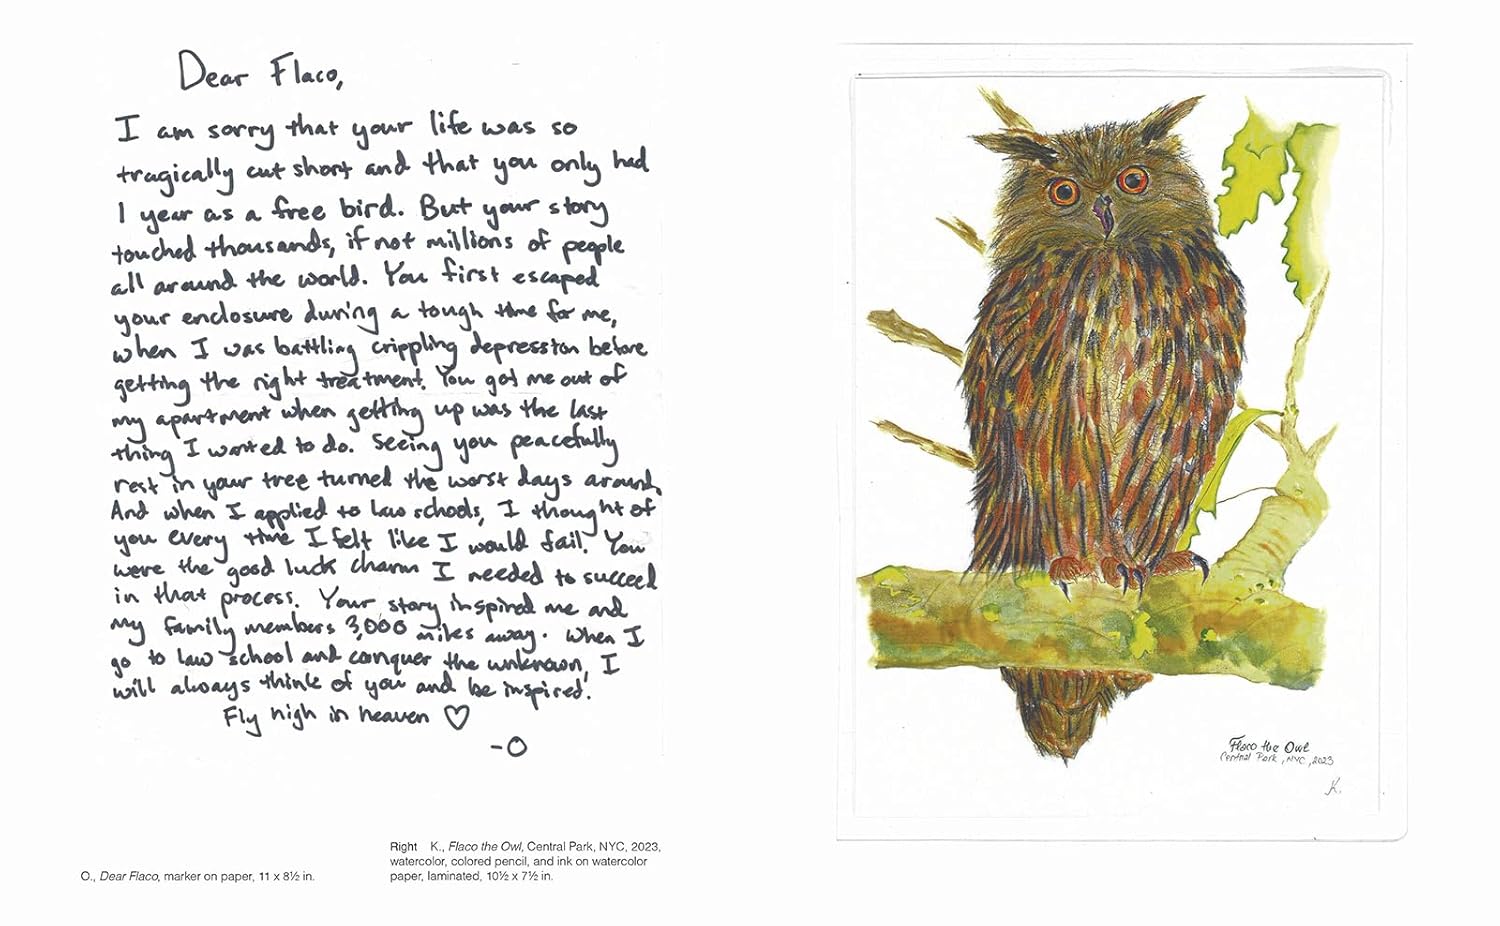 Dear Flaco,
I am sorry that your life was so
tragically cut short and that you only had
1 year as a free bird. But your story
touched thousands, if not millions of people
all around the world. You first escaped
your enclosure during a tough time for me,
when I was battling crippling depression before
getting the right treatment. You got me out of
my apartment when getting up was the last
thing I wanted to do. Seeing you peacefully
rest in your tree turned the worst days around.
And when I applied to law schools, I thought of
you every time I felt like I would fail. You
were the good luck charm I needed to succeed
in that process. Your story inspired me and
my family members 3,000 miles away. When I
go to law school and conquer the unknown, I
will always think of you and be inspired!
Fly high in heaven ♡
-O
O., Dear Flaco, marker on paper, 11 x 8½ in.
Right K., Flaco the Owl, Central Park, NYC, 2023,
watercolor, colored pencil, and ink on watercolor
paper, laminated, 10½ x 7½ in.
Flaco the Owl
Central Park, NYC, 2023
K.